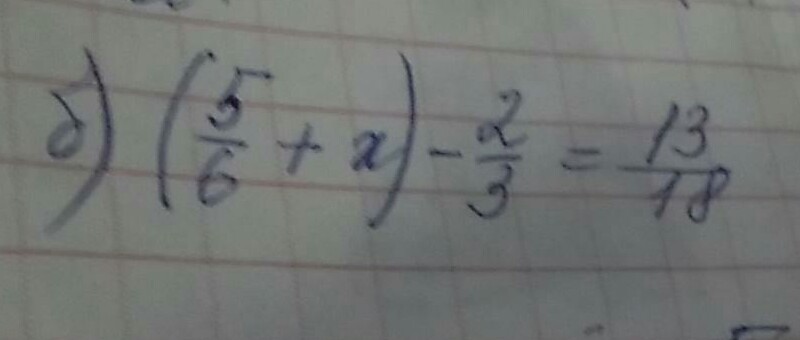 б) (5/6 + x) - 2/3 = 13/18